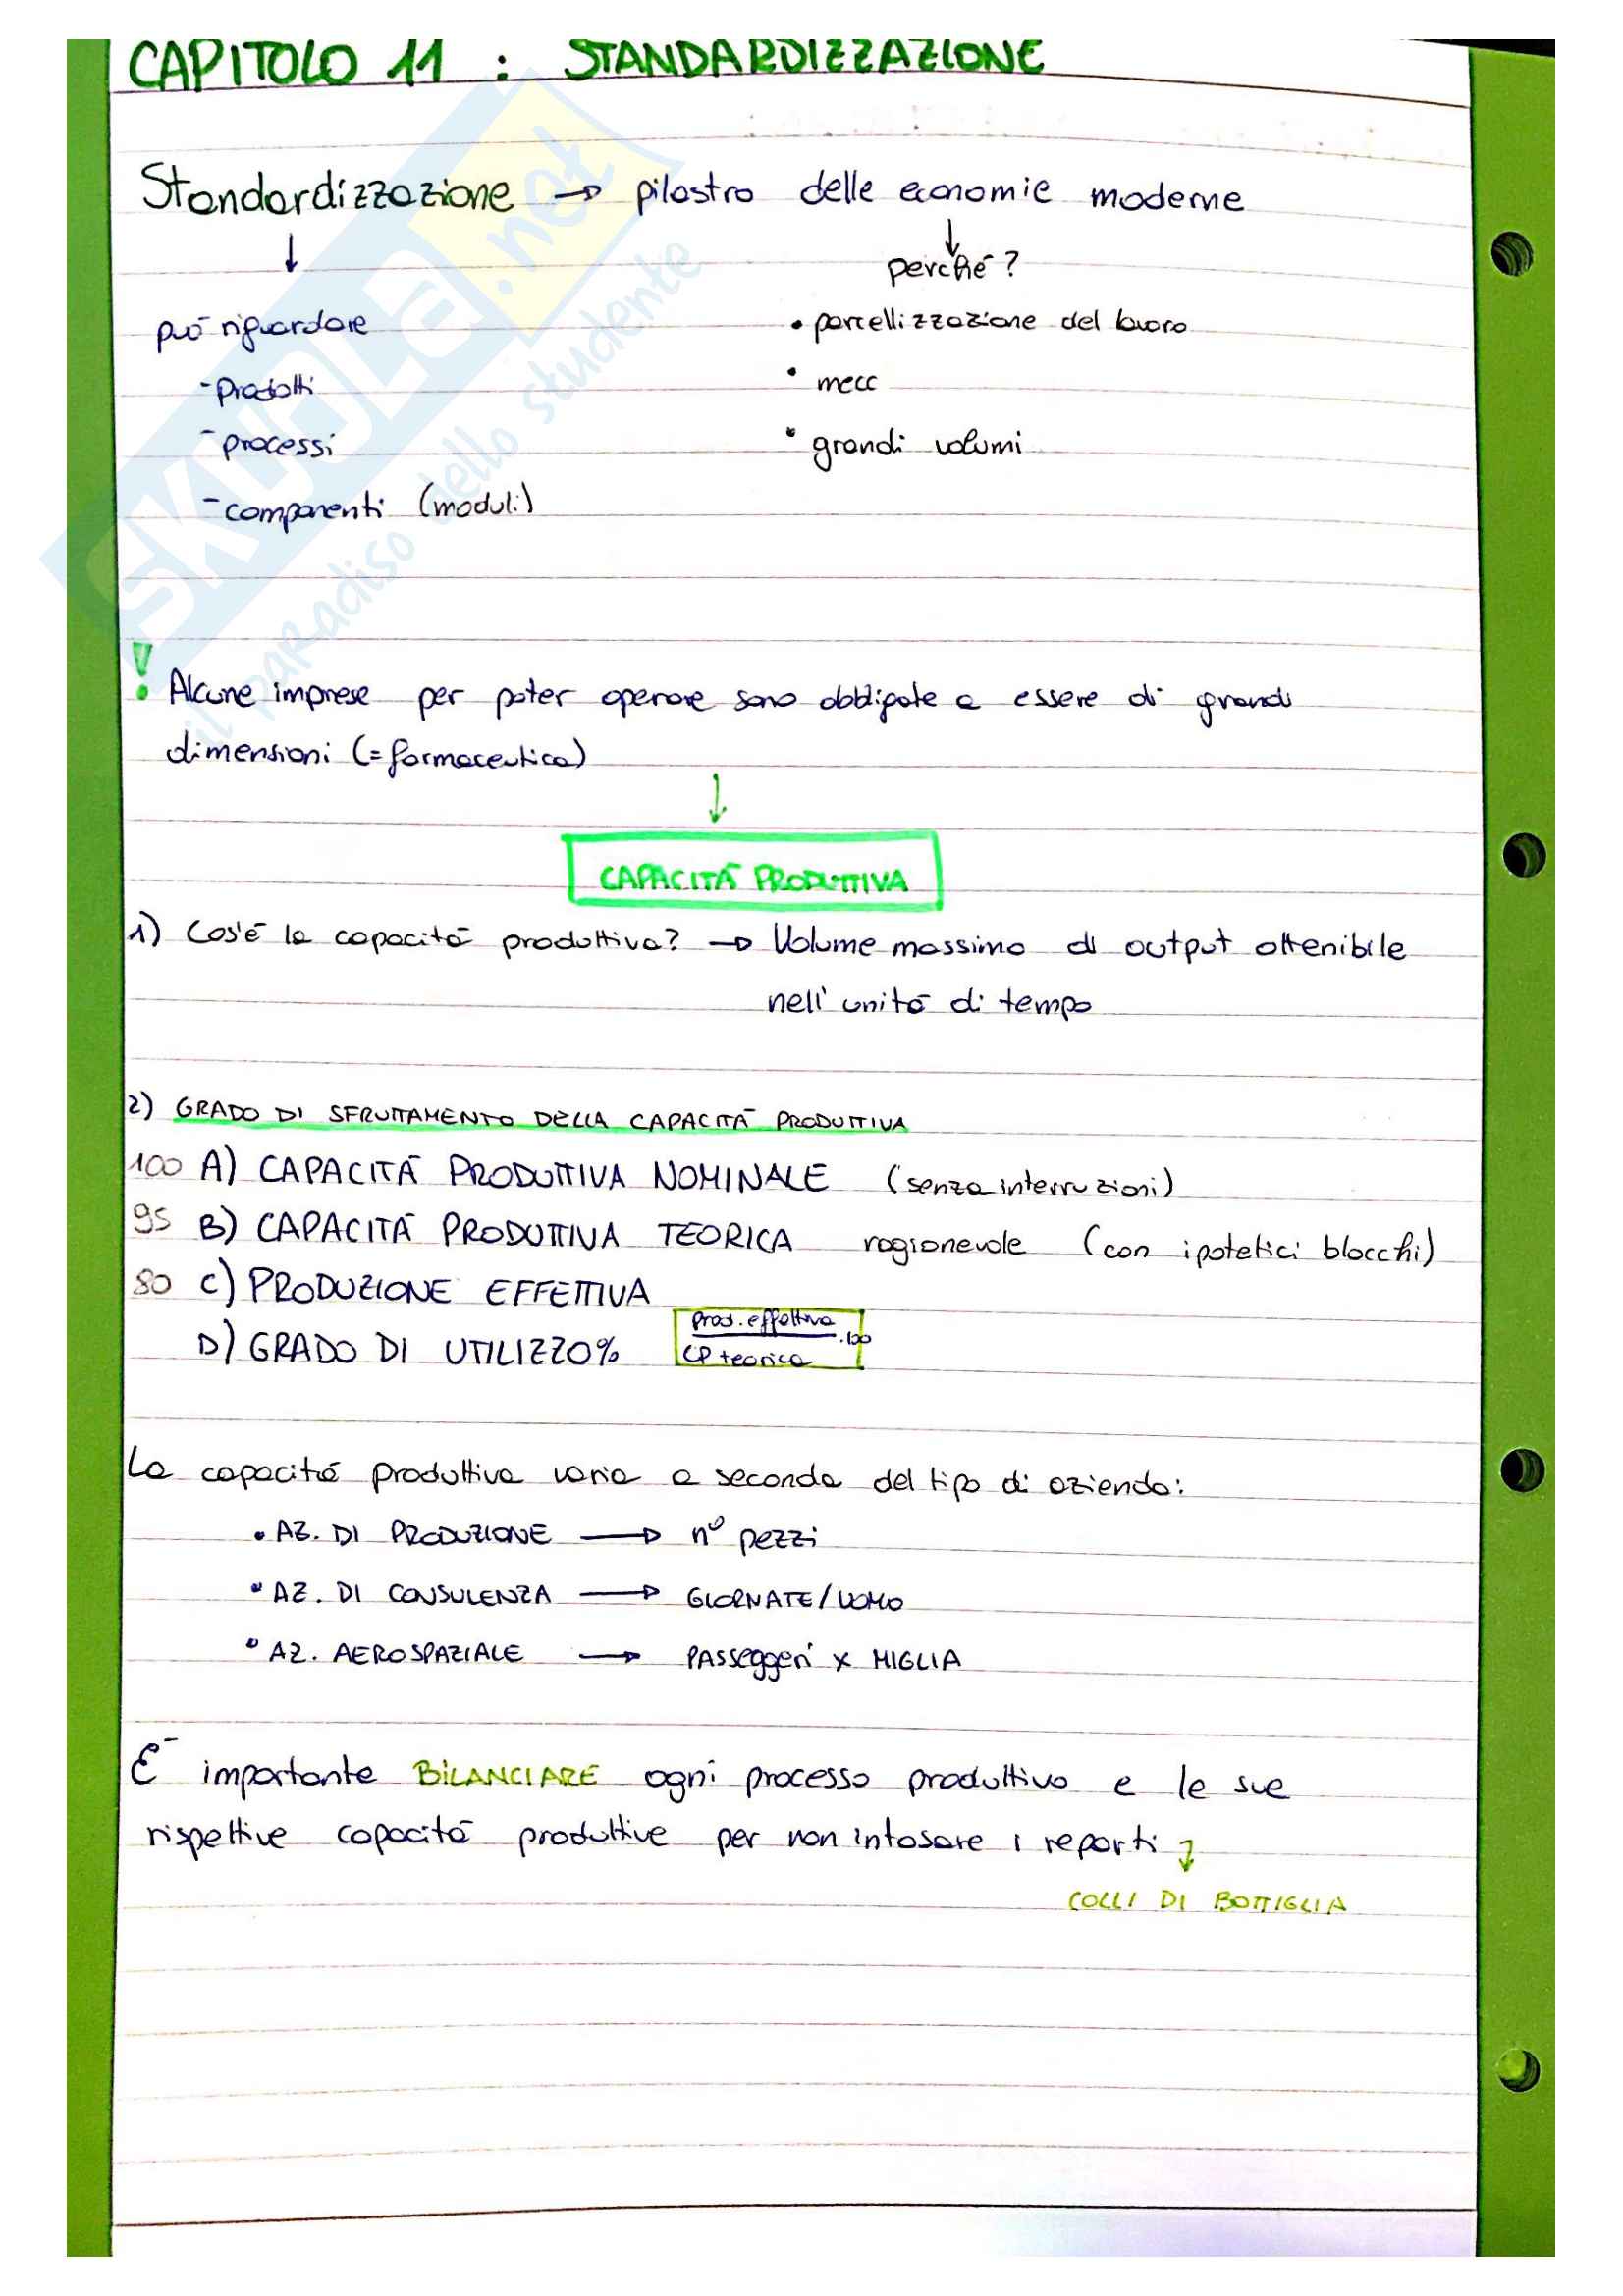 CAPITOLO 11 : STANDARDIZZAZIONE
Standardizzazione → pilastro delle economie moderne
↓ ↓
perché?
può riguardare • parcellizzazione del lavoro
- prodotti • mecc
- processi • grandi volumi
- componenti (moduli)
! Alcune imprese per poter operare sono obbligate a essere di grandi
dimensioni (= farmaceutica)
↓
CAPACITÀ PRODUTTIVA
1) Cos'è la capacità produttiva? → Volume massimo di output ottenibile
nell'unità di tempo
2) GRADO DI SFRUTTAMENTO DELLA CAPACITÀ PRODUTTIVA
100 A) CAPACITÀ PRODUTTIVA NOMINALE (senza interruzioni)
95 B) CAPACITÀ PRODUTTIVA TEORICA ragionevole (con ipotetici blocchi)
80 C) PRODUZIONE EFFETTIVA
D) GRADO DI UTILIZZO%
prod. effettiva
.100
CP teorica
La capacità produttiva varia a seconda del tipo di azienda:
• AZ. DI PRODUZIONE → n° pezzi
• AZ. DI CONSULENZA → GIORNATE/UOMO
• AZ. AEROSPAZIALE → PASSeggeri x MIGLIA
È importante BILANCIARE ogni processo produttivo e le sue
rispettive capacità produttive per non intasare i reparti
↓
COLLI DI BOTTIGLIA
SKUOLA.net
il paradiso dello studente